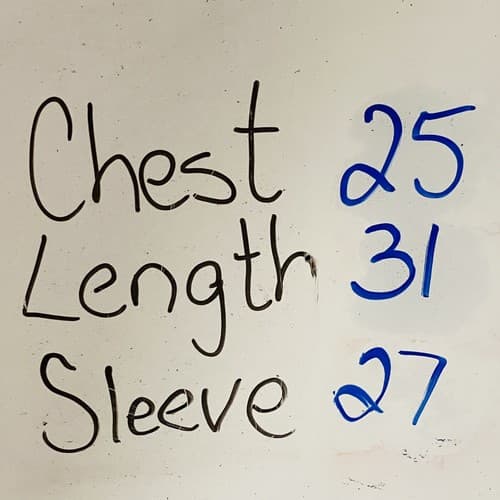 Chest 25
Length 31
Sleeve 27